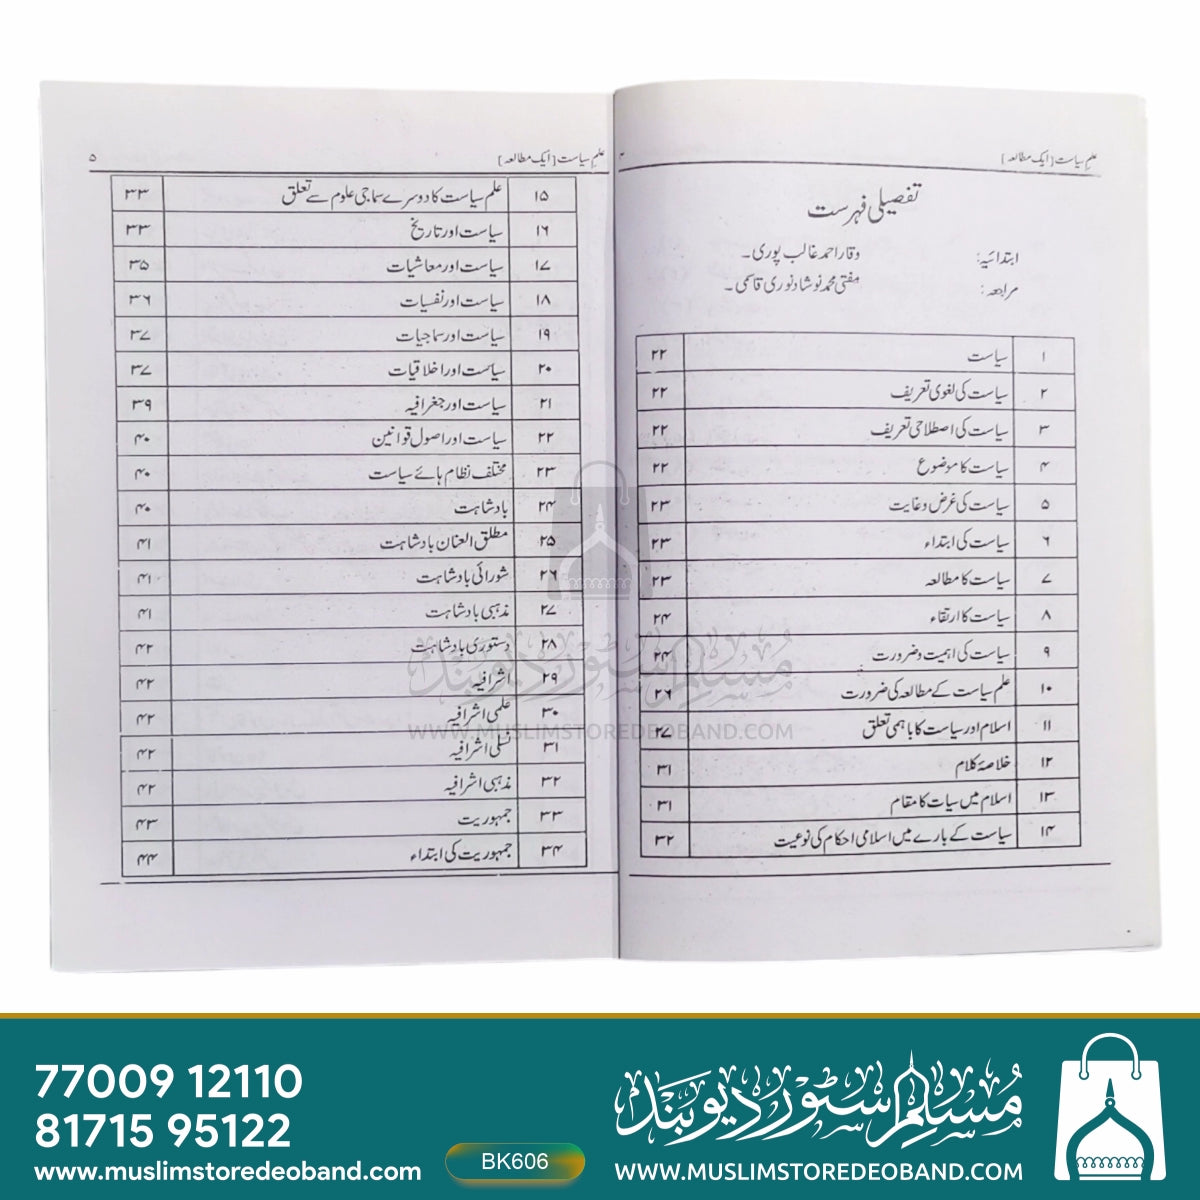 علم سیاست [ایک مطالعہ] ۴
تفصیلی فہرست
ابتدائیہ: وقار احمد غالب پوری۔
مراجعہ: مفتی محمد نوشاد نوری قاسمی۔
۱ سیاست ۲۲
۲ سیاست کی لغوی تعریف ۲۲
۳ سیاست کی اصطلاحی تعریف ۲۲
۴ سیاست کا موضوع ۲۲
۵ سیاست کی غرض و غایت ۲۳
۶ سیاست کی ابتداء ۲۳
۷ سیاست کا مطالعہ ۲۳
۸ سیاست کا ارتقاء ۲۴
۹ سیاست کی اہمیت و ضرورت ۲۴
۱۰ علم سیاست کے مطالعہ کی ضرورت ۲۶
۱۱ اسلام اور سیاست کا باہمی تعلق ۲۷
۱۲ خلاصۂ کلام ۳۱
۱۳ اسلام میں سیات کا مقام ۳۱
۱۴ سیاست کے بارے میں اسلامی احکام کی نوعیت ۳۲
علم سیاست [ایک مطالعہ] ۵
۱۵ علم سیاست کا دوسرے سماجی علوم سے تعلق ۳۳
۱۶ سیاست اور تاریخ ۳۳
۱۷ سیاست اور معاشیات ۳۵
۱۸ سیاست اور نفسیات ۳۶
۱۹ سیاست اور سماجیات ۳۷
۲۰ سیاست اور اخلاقیات ۳۷
۲۱ سیاست اور جغرافیہ ۳۹
۲۲ سیاست اور اصول قوانین ۴۰
۲۳ مختلف نظام ہائے سیاست ۴۰
۲۴ بادشاہت ۴۰
۲۵ مطلق العنان بادشاہت ۴۱
۲۶ شورائی بادشاہت ۴۱
۲۷ مذہبی بادشاہت ۴۱
۲۸ دستوری بادشاہت ۴۲
۲۹ اشرافیہ ۴۲
۳۰ علمی اشرافیہ ۴۲
۳۱ نسلی اشرافیہ ۴۲
۳۲ مذہبی اشرافیہ ۴۲
۳۳ جمہوریت ۴۳
۳۴ جمہوریت کی ابتداء ۴۴
مسلم سٹور دیوبند
WWW.MUSLIMSTOREDEOBAND.COM
77009 12110
81715 95122
www.muslimstoredeoband.com
BK606
مسلم سٹور دیوبند
WWW.MUSLIMSTOREDEOBAND.COM